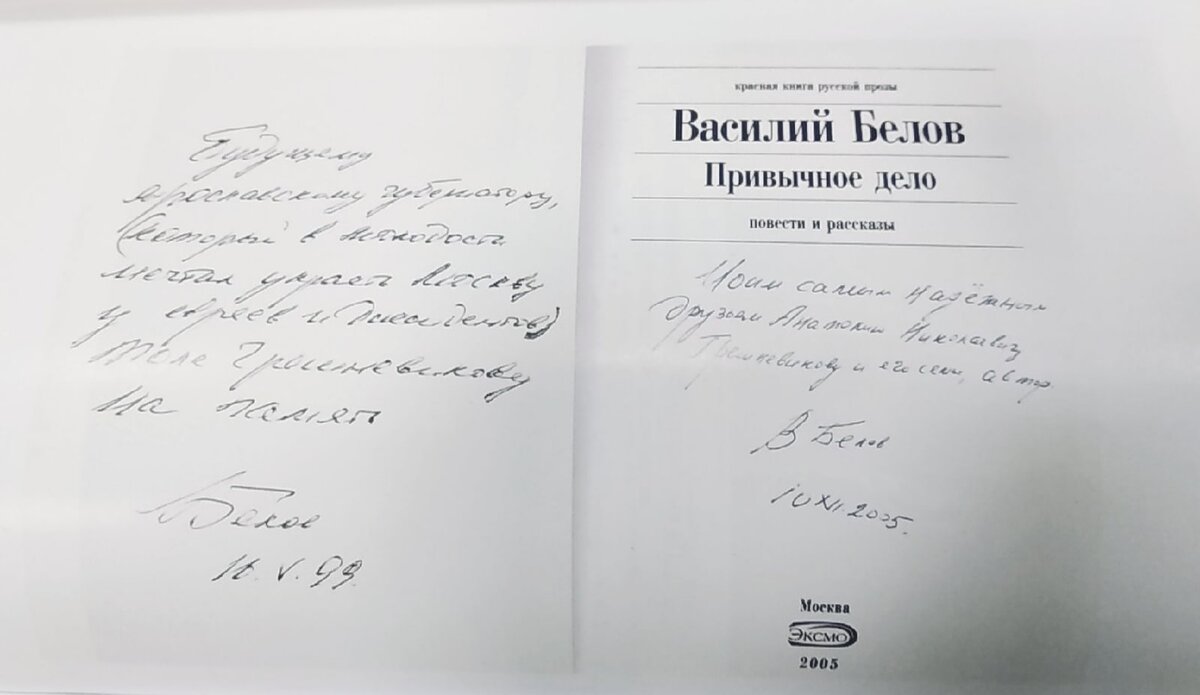 Будущему
ярославскому губернатору,
(который в молодости
мечтал украсть Москву
у евреев и диссидентов)
Толе Грешневикову
на память
Белов
16.V.99.
красная книга русской прозы
Василий Белов
Привычное дело
повести и рассказы
Моим самым надёжным
друзьям Анатолию Николаевичу
Грешневикову и его семье, автор
В Белов
2005.
Москва
ЭКСМО
2005